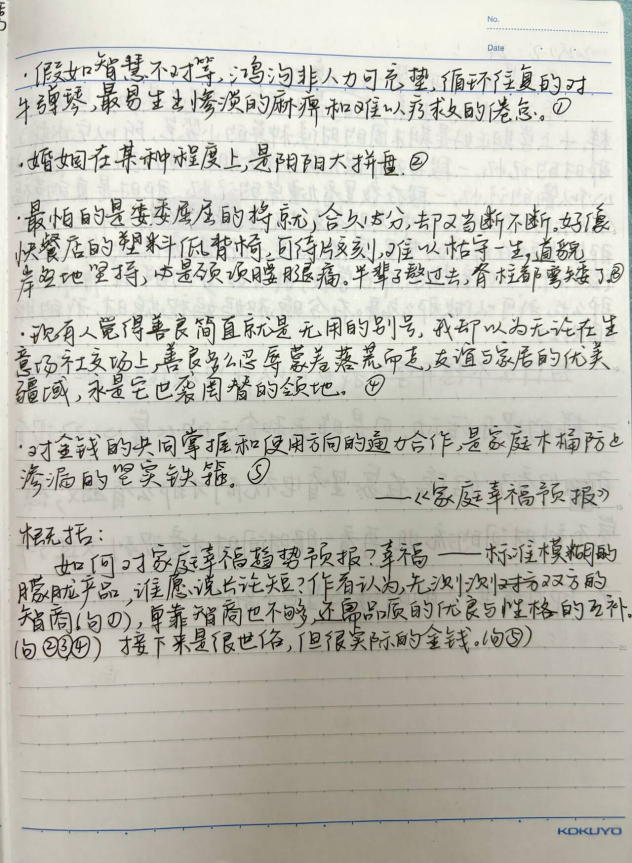 No.
Date
·假如智慧不对等,鸿沟非人力可充垫,循环往复的对
牛弹琴,最易生出惨淡的麻痹和难以疗救的倦怠。①
·婚姻在某种程度上,是阴阳大拼盘.②
·最怕的是委委屈屈的将就,合久必分,却又当断不断.好像
快餐店的塑料低背椅,可待片刻,难以枯守一生,道貌
岸然地坚持,必是颈项腰腿痛.半辈子熬过去,脊柱都要矮了③
·现有人觉得善良简直就是无用的别号,我却以为无论在生
意场社交场上,善良多么忍辱蒙羞落荒而走,友谊与家居的优美
疆域,永是它世袭罔替的领地。④
·对金钱的共同掌握和使用方向的通力合作,是家庭木桶防止
渗漏的坚实铁箍。⑤
——《家庭幸福预报》
概括:
如何对家庭幸福趋势预报?幸福——标准模糊的
朦胧产品,谁愿说长论短?作者认为,先测测对方双方的
智商(句①),单靠智商也不够,还需品质的优良与性格的互补.
(句②③④) 接下来是很世俗,但很实际的金钱.(句⑤)
KOKUYO